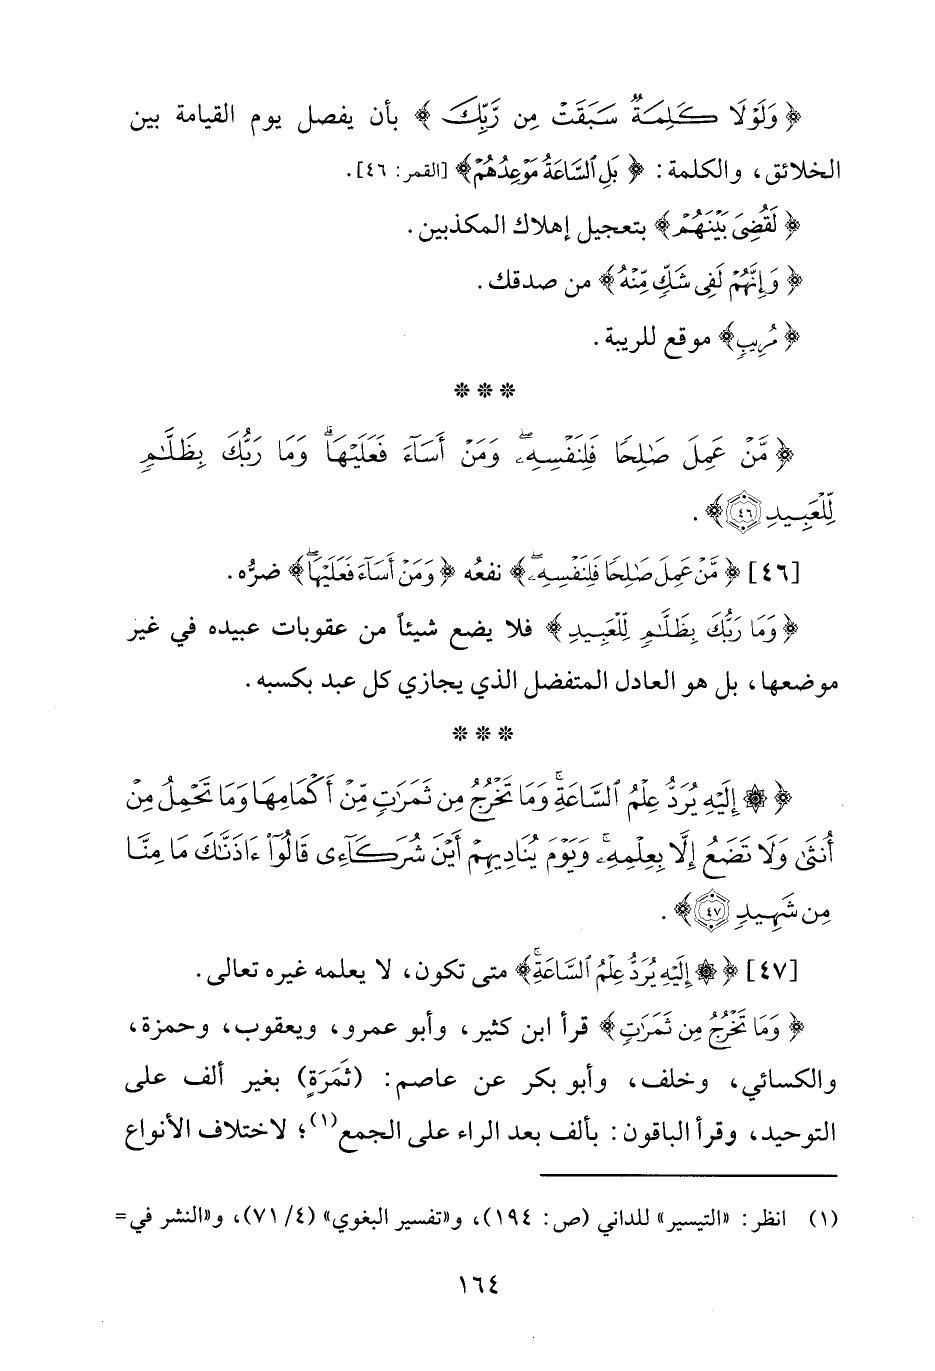 ﴿ وَلَوْلَا كَلِمَةٌ سَبَقَتْ مِن رَّبِّكَ ﴾ بأن يفصل يوم القيامة بين
الخلائق، والكلمة: ﴿ بَلِ ٱلسَّاعَةُ مَوْعِدُهُمْ﴾ [القمر: ٤٦].
﴿ لَقُضِىَ بَيْنَهُمْ﴾ بتعجيل إهلاك المكذبين.
﴿ وَإِنَّهُمْ لَفِى شَكٍّ مِّنْهُ﴾ من صدقك.
﴿ مُرِيبٍ﴾ موقع للريبة.
***
﴿ مَّنْ عَمِلَ صَٰلِحًا فَلِنَفْسِهِۦۖ وَمَنْ أَسَآءَ فَعَلَيْهَاۗ وَمَا رَبُّكَ بِظَلَّٰمٍ
لِّلْعَبِيدِ ٤٦﴾.
[٤٦] ﴿ مَّنْ عَمِلَ صَٰلِحًا فَلِنَفْسِهِۦۖ﴾ نفعُه ﴿ وَمَنْ أَسَآءَ فَعَلَيْهَاۖ﴾ ضرُّه.
﴿ وَمَا رَبُّكَ بِظَلَّٰمٍ لِّلْعَبِيدِ ﴾ فلا يضع شيئاً من عقوبات عبيده في غير
موضعها، بل هو العادل المتفضل الذي يجازي كل عبد بكسبه.
***
﴿ ۞ إِلَيْهِ يُرَدُّ عِلْمُ ٱلسَّاعَةِۚ وَمَا تَخْرُجُ مِن ثَمَرَٰتٍ مِّنْ أَكْمَامِهَا وَمَا تَحْمِلُ مِنْ
أُنثَىٰ وَلَا تَضَعُ إِلَّا بِعِلْمِهِۦۚ وَيَوْمَ يُنَادِيهِمْ أَيْنَ شُرَكَآءِى قَالُوٓا۟ ءَاذَنَّٰكَ مَا مِنَّا
مِن شَهِيدٍ ٤٧﴾.
[٤٧] ﴿ ۞ إِلَيْهِ يُرَدُّ عِلْمُ ٱلسَّاعَةِۚ﴾ متى تكون، لا يعلمه غيره تعالى.
﴿ وَمَا تَخْرُجُ مِن ثَمَرَٰتٍ ﴾ قرأ ابن كثير، وأبو عمرو، ويعقوب، وحمزة،
والكسائي، وخلف، وأبو بكر عن عاصم: (ثَمَرَةٍ) بغير ألف على
التوحيد، وقرأ الباقون: بألف بعد الراء على الجمع(١)؛ لاختلاف الأنواع
(١) انظر: «التيسير» للداني (ص: ١٩٤)، و«تفسير البغوي» (٤/ ٧١)، و«النشر في=
١٦٤